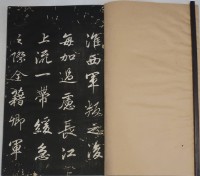 淮西軍叛之後
每加過慮長江
上流一帶緩急
之際全藉卿軍